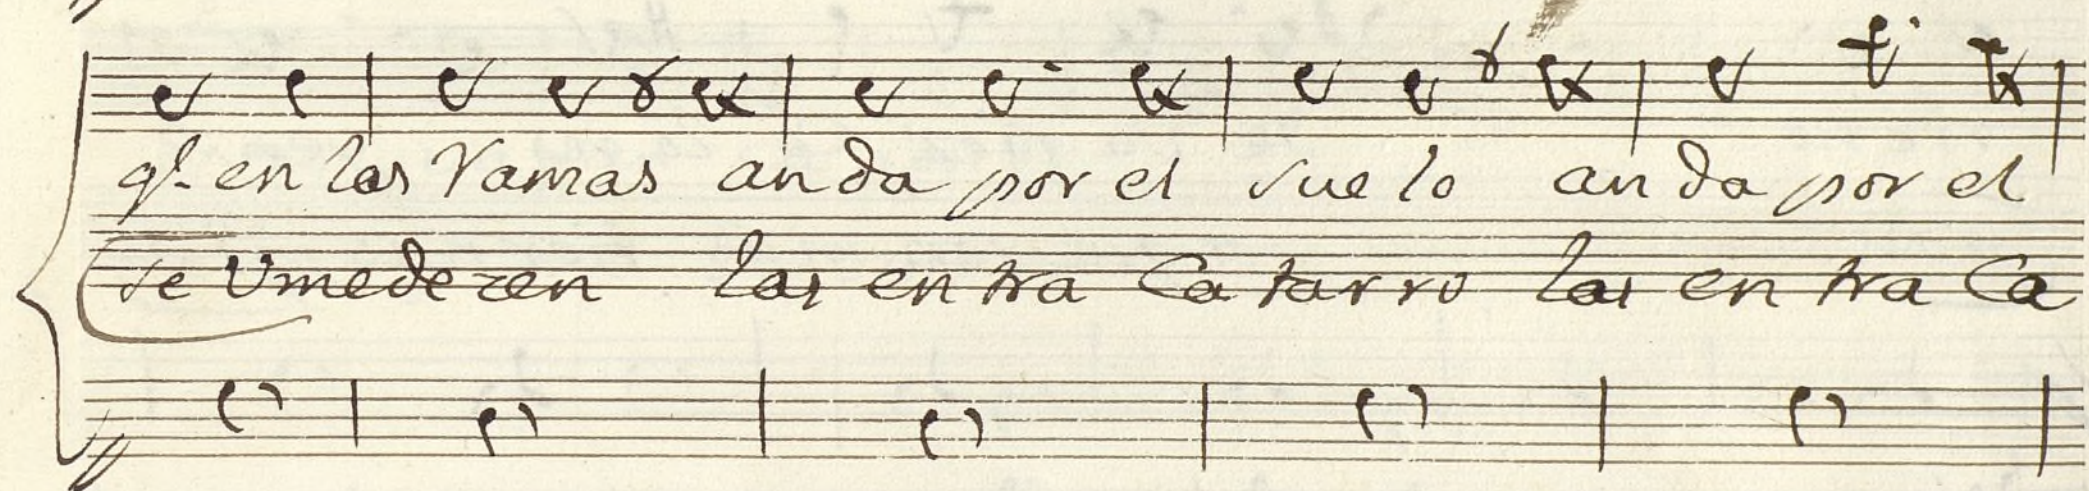 qe. en las Ramas an da por el vue lo an da por el
se Umedezen las en tra Ca tar ro las en tra Ca